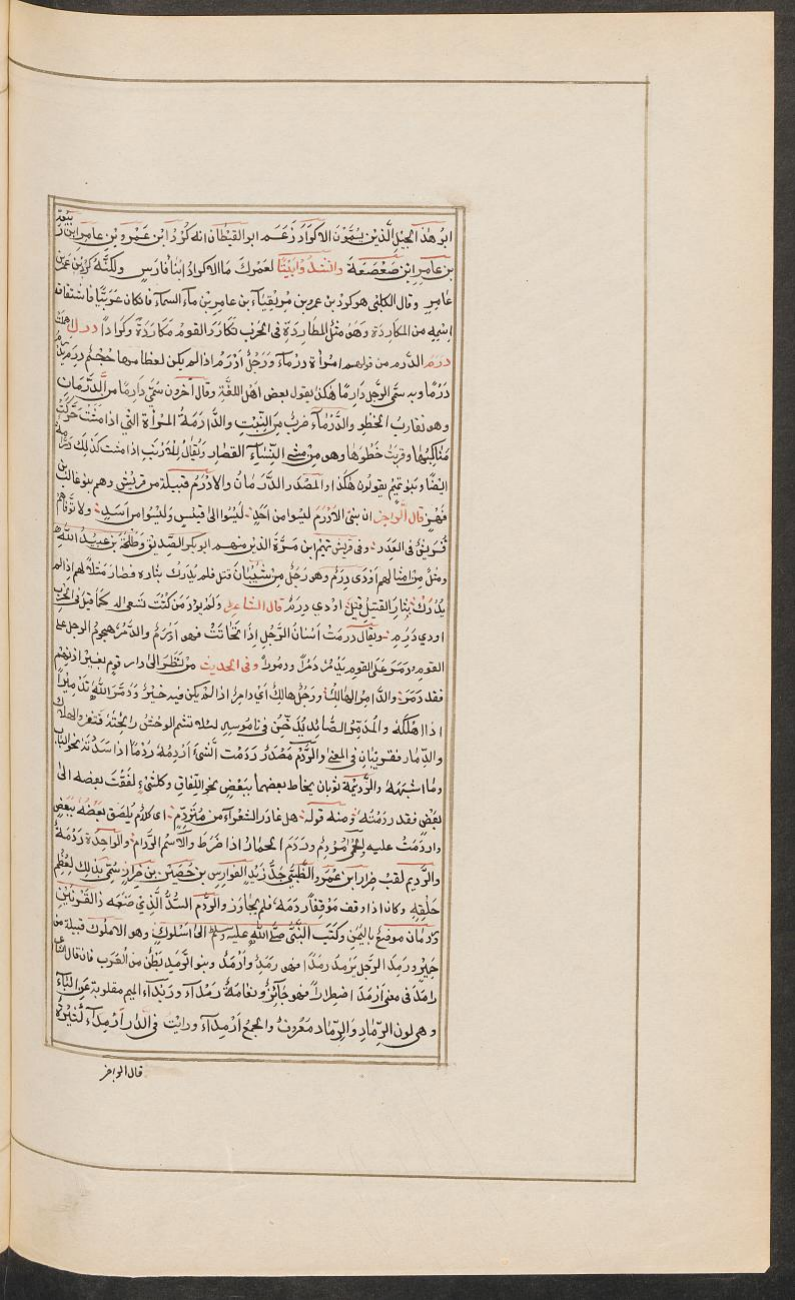 ابو هذا الجيل الذين يسمون الاكراد زعم ابو اليقظان انه كُرْد ابن عَمْرو بن عامر ابن ربيعة
بن عامر ابن صَعْصَعة وانشدوا بيتًا لعمرك ما الاكراد ابنا فارس ولكنه كرد بن عمرو بن
عامر وقال الكلبي هو كرد بن عمرو بن مزيقياء بن عامر بن ماء السماء فان كان عربيًّا فاشتقاقه
اسمه من المكاردة وهو مثل المطاردة في الحرب تكارد القوم مكاردةً وكرادًا درل اهملت
درم الدرم من قولهم امراة درماء ورجل ادرم اذا لم يكن لعظامها حجم درم يدرم
درمًا وبه سمي الرجل دارمًا هكذا يقول بعض اهل اللغة وقال اخرون سمي دارمًا من الدرمان
وهو تقارب الخطو والدرماء ضرب من النبت والدارمة المراة التي اذا مشت حركت
مناكبها وقربت خطوها وهو من مشي النساء القصار ويقال للارنب اذا مشت كذلك درامة
ايضًا وبنو تميم يقولون هكذا والمصدر الدرمان والادرم قبيلة من قريش وهم بنو غالب بن
فهر قال الراجز ان بني الادرم ليسوا من احد ليسوا الى قيس وليسوا من اسد ولا توفاهم
قريش في العدد وفي قريش تيم ابن مرة الذين منهم ابو بكر الصديق وطلحة بن عبيد الله
ومثل من امثالهم اودى درم وهو رجل من شيبان قتل فلم يدرك بثاره فصار مثلًا لهم اذا لم
يدرك بثار القتيل قيل اودي درم قال الشاعر ولم يود من كنت تسعى له كما قيل في الحرب
اودى درم ويقال درمت اسنان الرجل اذا تحاتت فهو ادرم والدمر هجوم الرجل على
القوم دمر على القوم يدمر دمرًا ودمورًا وفي الحديث من نظر الى دار قوم بغير اذنهم
فقد دمر والدامر الهالك ورجل هالك اي دامر اذا لم يكن فيه خير ودمر الله تدميرًا
اذا اهلكه والمدمر الصائد يدخن في ناموسه لئلا تشم الوحش رائحته فتنفر والهلاك
والدمار متقربان في المعنى والردم مصدر ردمت الشيء اردمه ردمًا اذا سددته نحو الباب
وما اشبهه والرديمة ثوبان يخاط بعضهما ببعض نحو اللفاق وكل شيء لفقت بعضه الى
بعض فقد ردمته ومنه قوله هل غادر الشعراء من متردم اي كلام يلصق بعضه ببعض
واردمت عليه الحمى مردم وردم الحمار اذا ضرط والاسم الردام والواحدة ردمة
والرديم لقب ضرار ابن عمرو الضبي جد زيد الفوارس بن حصين بن ضرار سمي بذلك لعظم
خلقه وكان اذا وقف موقفًا ردمه فلم يجاوز والردم السد الذي صنعه ذا القرنين
وردمان موضع باليمن وكتب النبي صلى الله عليه وسلم الى املوك وهو الاملوك قبيلة من
حمير ورمد الرجل يرمد رمدًا فهو رمد وارمد وبنو الرمد بطن من العرب فان قال الشاعر
رامد في معنى ارمد اضطرارًا فهو جائز ونعامة رمداء وربداء الميم مقلوبة عن الباء
وهي لون الرماد والرماد معروف والجمع ارمداء ورايت في الدار ارمداء كثيرة
قال الراجز